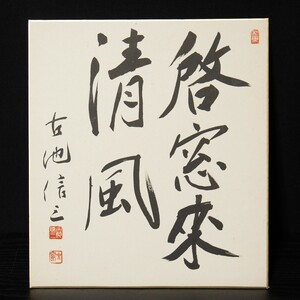 啓窓來
清風
古池信三